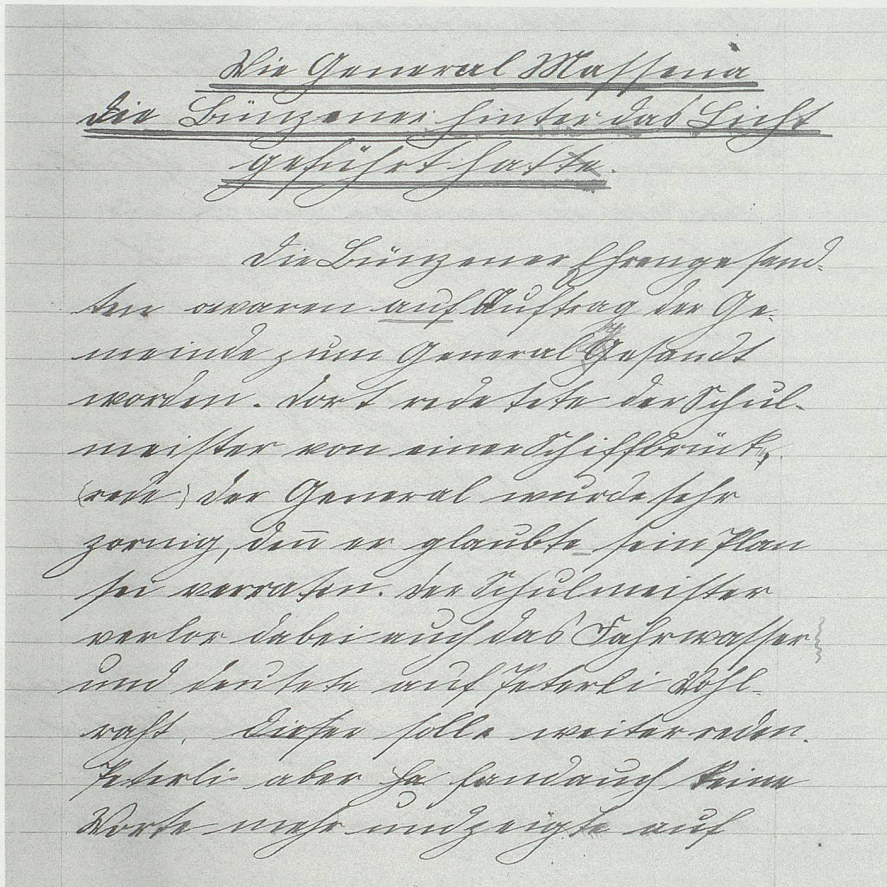 Wie General Massena
die Bünzener hinter das Licht
geführt hatte.
Die Bünzener Ehrengesand-
ten waren auf Auftrag der Ge-
meinde zum General Gesandt
worden. Dort redetete der Schul-
meister von einer Schiffbrück,
(rede) Der General wurde sehr
zornig, den̄ er glaubte sein Plan
sei verraten. Der Schulmeister
verlor dabei auch das Fahrwasser
und deutete auf Peterli Wohl-
raht. Dieser solle weiter reden.
Peterli aber fand auch keine
Worte mehr und zeigte auf